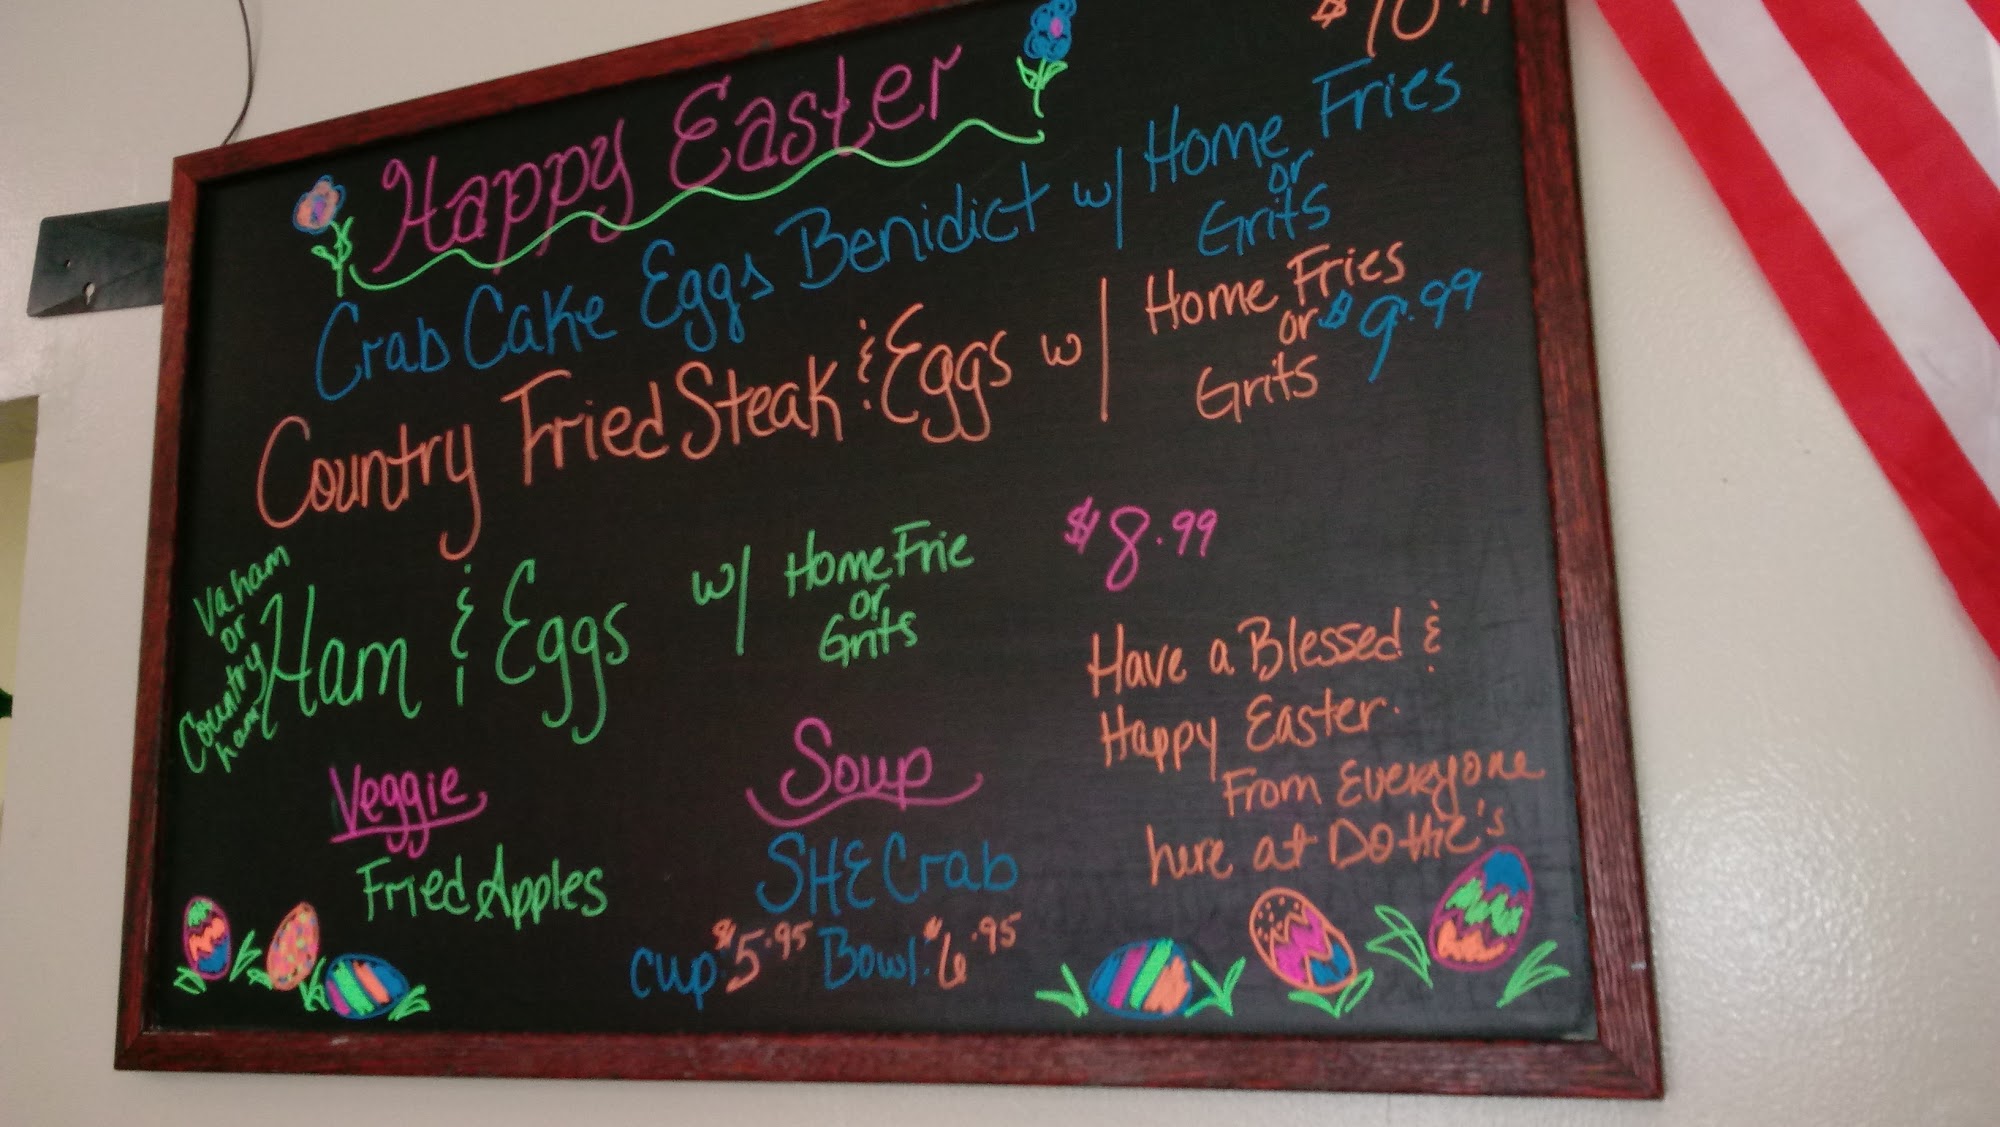 Happy Easter
$10
Crab Cake Eggs Benidict w/ Home Fries
or
Grits
Country Fried Steak & Eggs w/ Home Fries
or $9.99
Grits
Va ham
or
Country
ham
Ham & Eggs w/ Home Frie
or
Grits
$8.99
Have a Blessed &
Happy Easter.
From Everyone
here at Dottie's
Veggie
Fried Apples
Soup
SHE Crab
Cup $5.95 Bowl $6.95